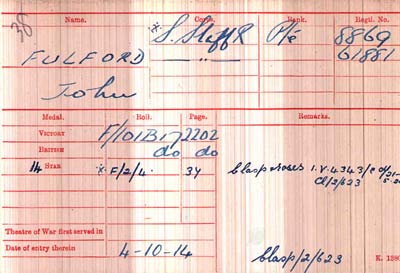 38
Name. Corps. Rank. Regtl. No.
* S. Staff R Pte 8869
FULFORD — " — 61881
John
Medal. Roll. Page. Remarks.
VICTORY F/101B17 2202
BRITISH do do
14 STAR * F/2/4. 34 Clasp & roses I.V. 4343/e d/21-5-20
Cl/2/623
Theatre of War first served in
Date of entry therein 4-10-14 Clasp/2/623 K. 1380